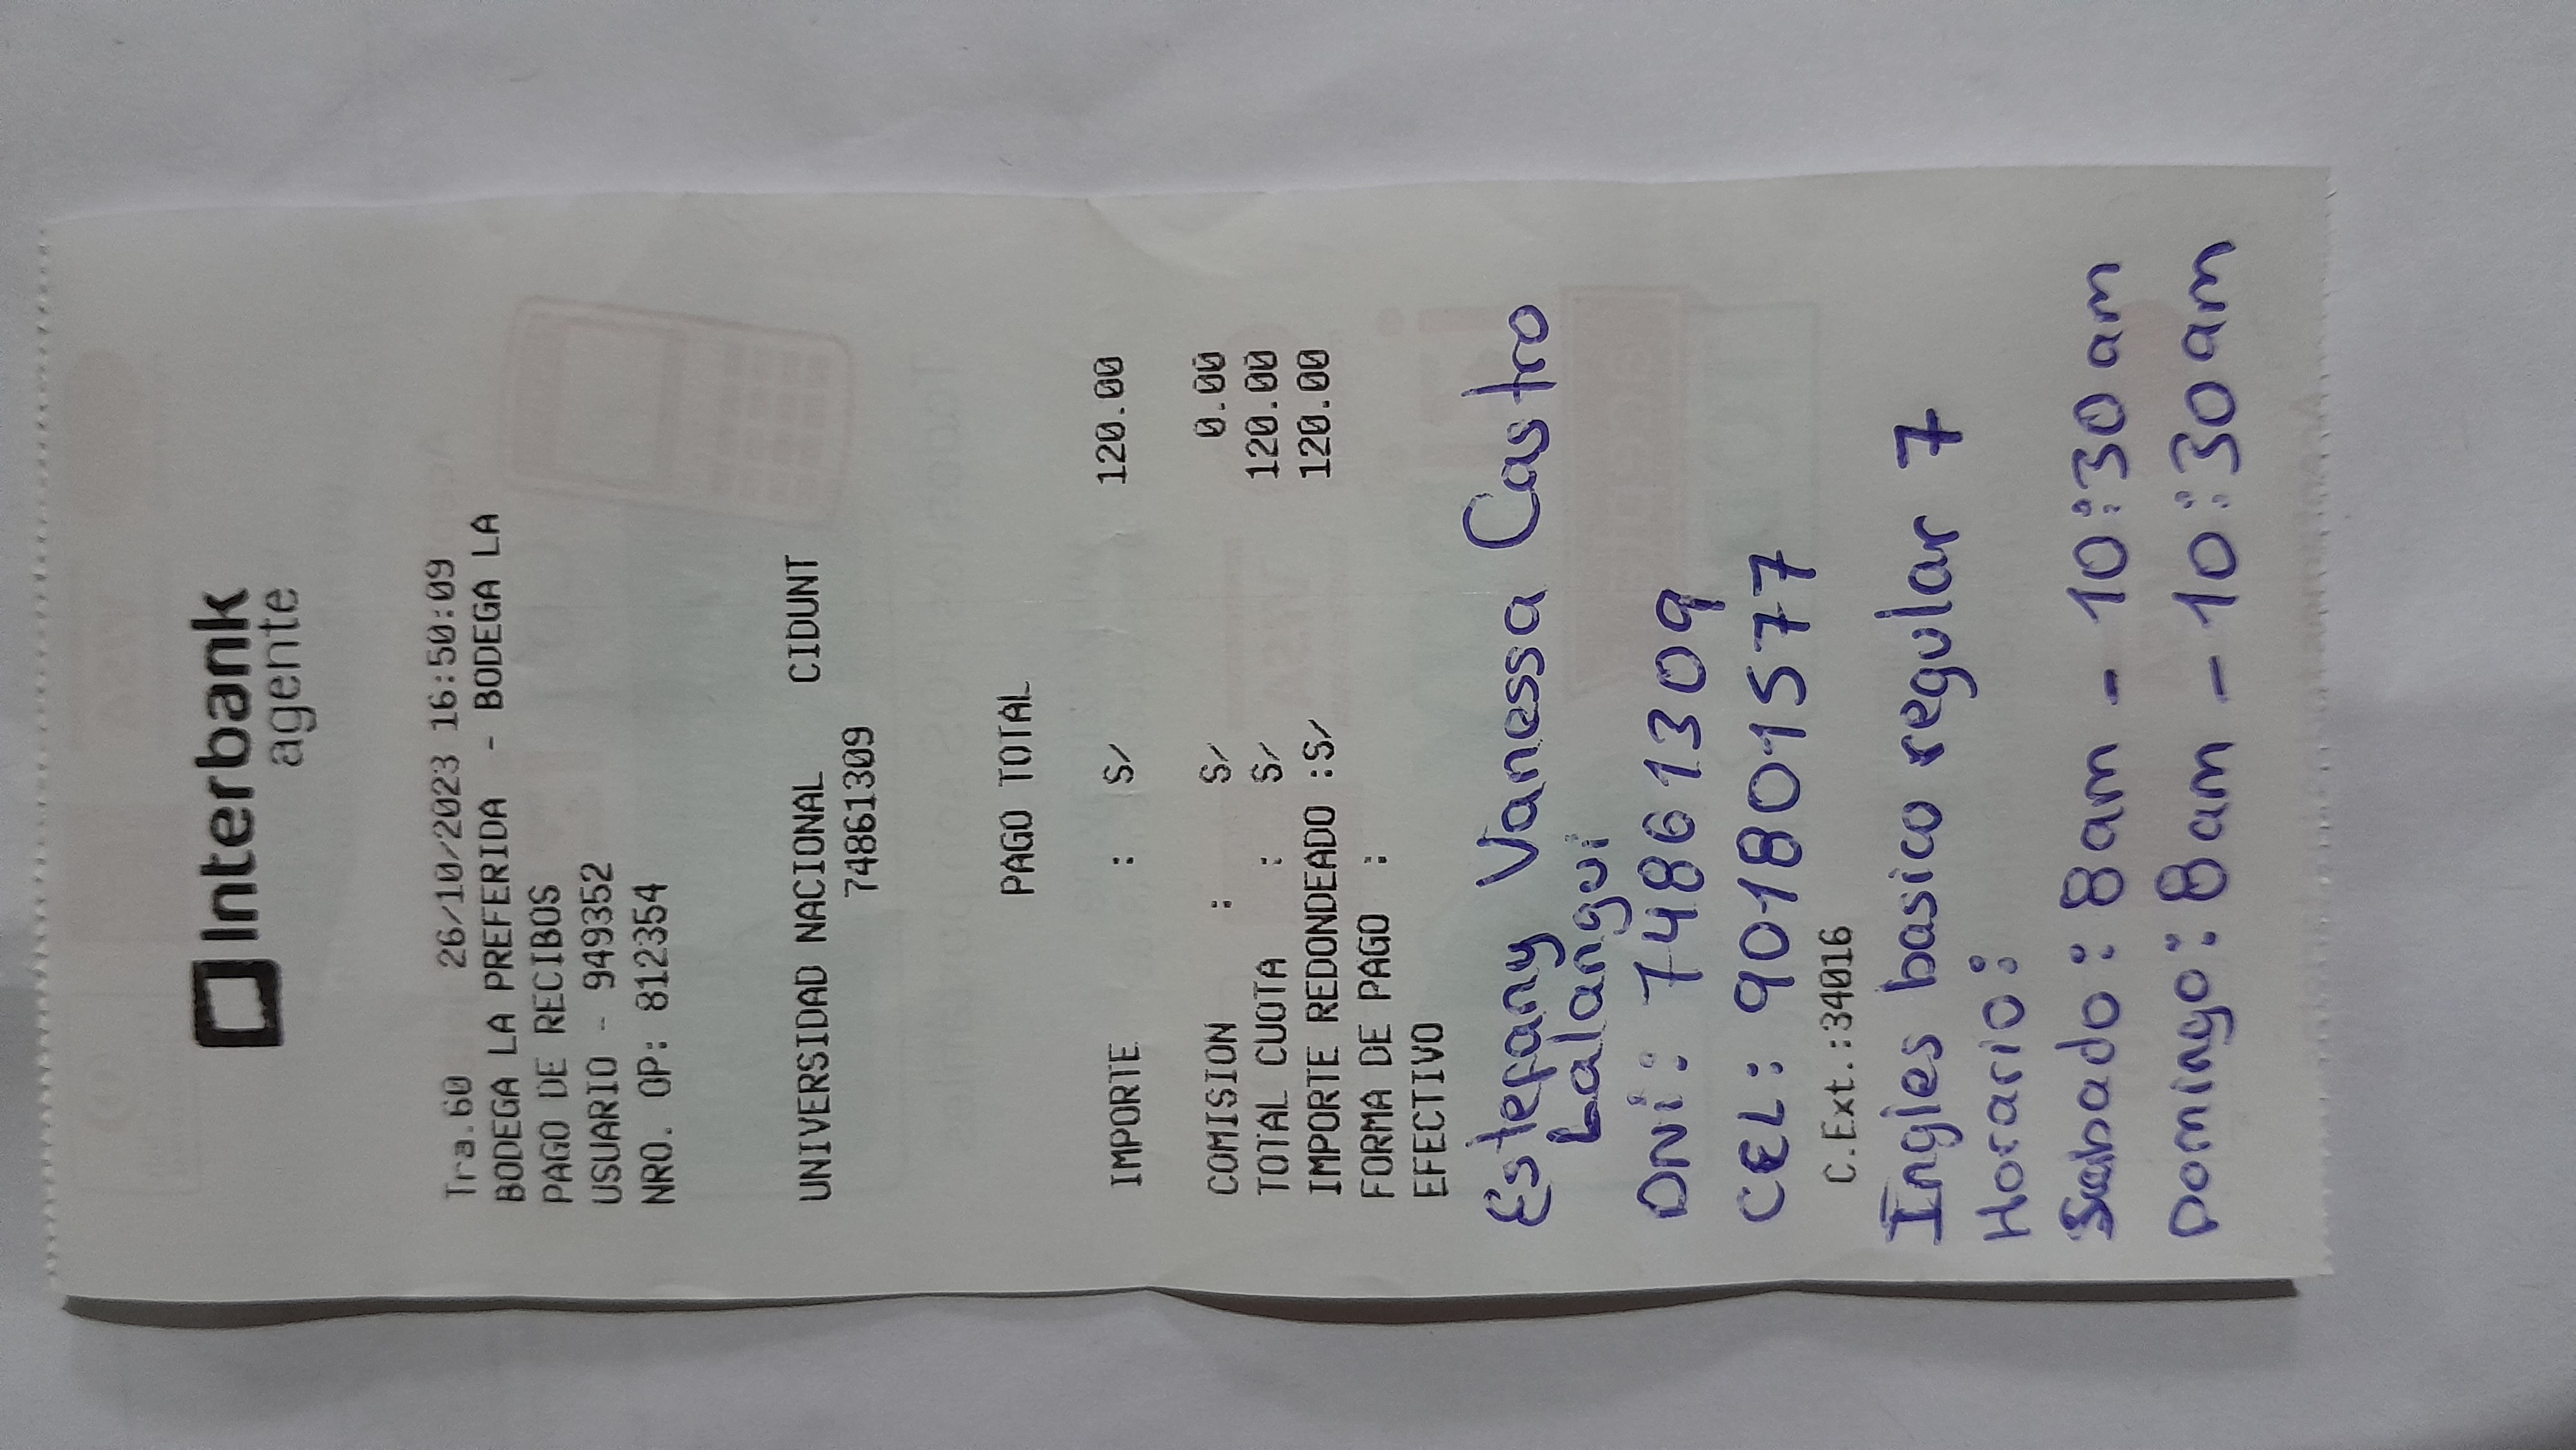 Interbank
agente
Tra.60 26/10/2023 16:50:09
BODEGA LA PREFERIDA - BODEGA LA
PAGO DE RECIBOS
USUARIO - 949352
NRO. OP: 812354
UNIVERSIDAD NACIONAL CIDUNT
74861309
PAGO TOTAL
IMPORTE : S/ 120.00
COMISION : S/ 0.00
TOTAL CUOTA : S/ 120.00
IMPORTE REDONDEADO :S/ 120.00
FORMA DE PAGO :
EFECTIVO
Estefany Vanessa Castro
Lalangui
DNi: 74861309
CEL: 901801577
C.Ext.:34016
Ingles basico regular 7
Horario:
Sabado: 8am - 10:30am
Domingo: 8am - 10:30am